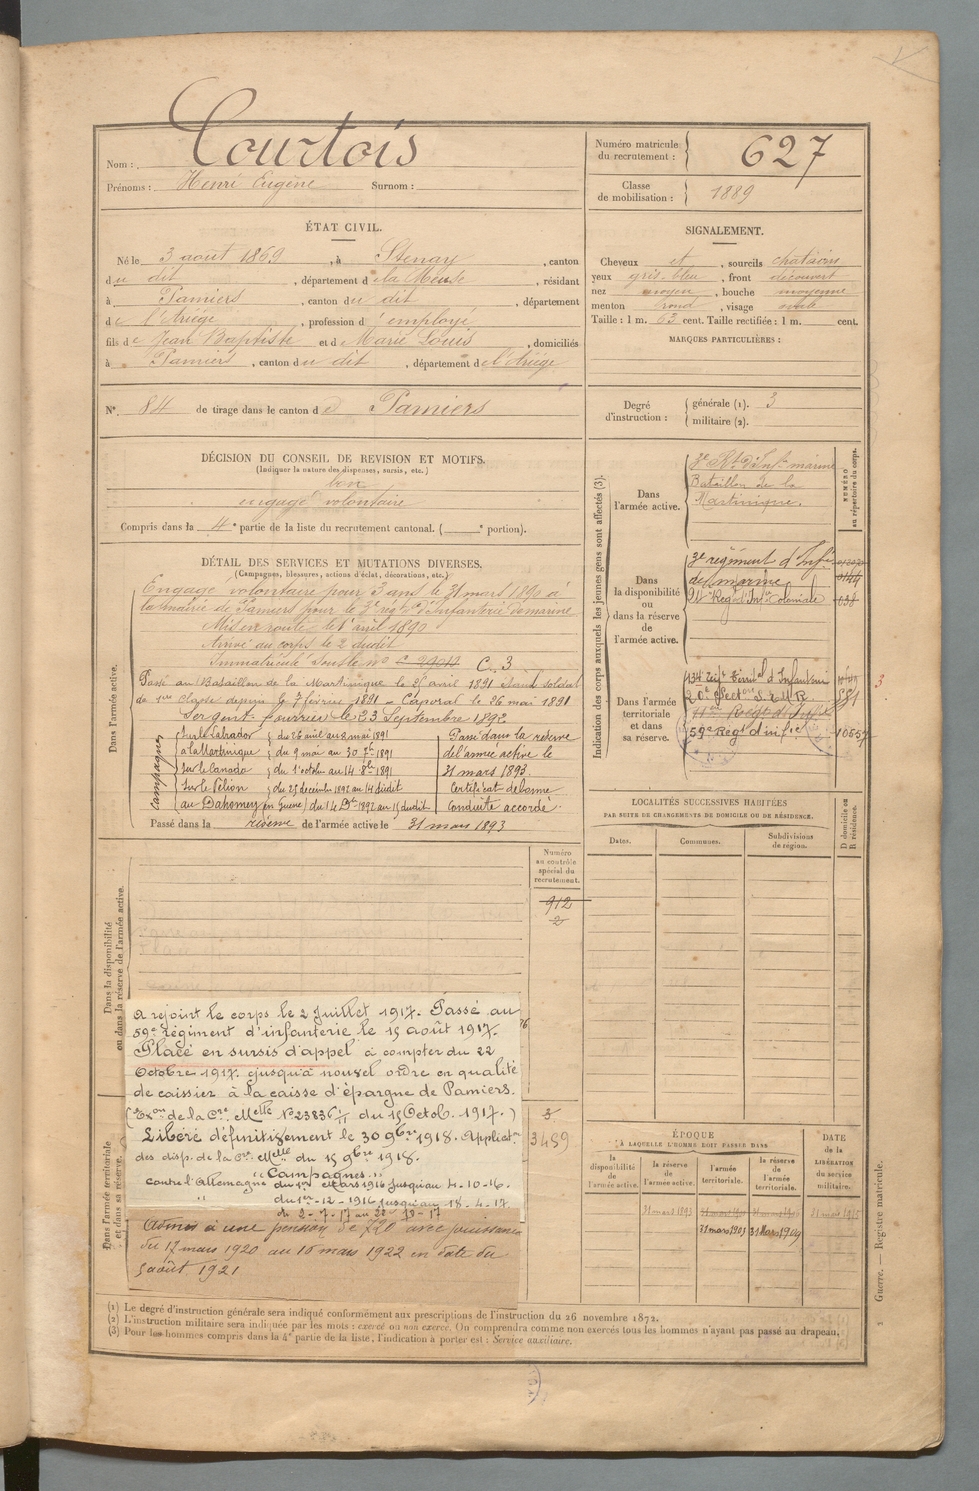 Nom : Courtois
Prénoms : Henri Eugène Surnom :
Numéro matricule du recrutement : 627
Classe de mobilisation : 1889
ÉTAT CIVIL.
Né le 3 août 1869, à Stenay, canton
du dit, département de la Meuse, résidant
à Pamiers, canton du dit, département
de l'Ariège, profession d'employé
fils de Jean Baptiste et de Marie Louis, domiciliés
à Pamiers, canton du dit, département de l'Ariège
N° 84 de tirage dans le canton de Pamiers
SIGNALEMENT.
Cheveux et, sourcils châtains
yeux gris-bleu, front découvert
nez moyen, bouche moyenne
menton rond, visage ovale
Taille : 1 m. 63 cent. Taille rectifiée : 1 m. cent.
MARQUES PARTICULIÈRES :
Degré d'instruction : générale (1). 3
militaire (2).
DÉCISION DU CONSEIL DE REVISION ET MOTIFS.
(Indiquer la nature des dispenses, sursis, etc.)
bon
engagé volontaire
Compris dans la 4e partie de la liste du recrutement cantonal. ( e portion).
DÉTAIL DES SERVICES ET MUTATIONS DIVERSES.
(Campagnes, blessures, actions d'éclat, décorations, etc.)
Dans l'armée active.
Engagé volontaire pour 3 ans le 31 mars 1890 à
la mairie de Pamiers pour le 3e regt d'Infanterie de marine
Mis en route le 1er avril 1890
Arrivé au corps le 2 dudit
Immatriculé sous le no C. 3
Passé au Bataillon de la Martinique le 25 avril 1891 étant soldat
de 1re classe depuis le 7 février 1891 - Caporal le 26 mai 1891
Sergent fourrier le 23 Septembre 1892
Campagnes
Sur le Labrador du 26 avril au 8 mai 1891
à la Martinique du 9 mai au 30 7bre 1891
Sur le Canada du 1er octobre au 14 8bre 1891
Sur le Pélion du 25 décembre 1892 au 14 dudit
au Dahomey (en Guerre) du 14 Dbre 1892 au 15 dudit
Passé dans la réserve
de l'armée active le
31 mars 1893.
Certificat de bonne
conduite accordé.
Passé dans la réserve de l'armée active le 31 mars 1893
Indication des corps auxquels les jeunes gens sont affectés (3).
NUMÉRO au répertoire du corps.
Dans l'armée active.
3e Rt d'Inft marine
Bataillon de la
Martinique.
Dans la disponibilité ou dans la réserve de l'armée active.
3e régiment d'Infie
de marine
Regt d'Infie Coloniale
Dans l'armée territoriale et dans sa réserve.
134 Regt Territal d'Infanterie
20e Section S.E.M.R. 581
59e Regt d'infie 10557
3
LOCALITÉS SUCCESSIVES HABITÉES
PAR SUITE DE CHANGEMENTS DE DOMICILE OU DE RÉSIDENCE.
D domicile ou R résidence.
Dates. Communes. Subdivisions de région.
Numéro au contrôle spécial du recrutement.
912
2
Dans la disponibilité ou dans la réserve de l'armée active.
A rejoint le corps le 2 Juillet 1917. Passé au
59e régiment d'infanterie le 15 août 1917.
Placé en sursis d'appel à compter du 22
Octobre 1917 jusqu'à nouvel ordre en qualité
de caissier à la caisse d'épargne de Pamiers.
(Exon de la Cre Melle No 23836 1/11 du 15 Octob. 1917.)
Libéré définitivement le 30 9bre 1918. Applicaton
des disp. de la Cre Melle du 15 9bre 1918.
"Campagnes"
contre l'Allemagne du 1er Mars 1916 jusqu'au 4-10-16.
" du 1er-12-1916 jusqu'au 18-4-17
du 2-7-17 au 22 10-17
Dans l'armée territoriale et dans sa réserve.
3
3459
Admis à une pension de 720 avec jouissance
du 17 mars 1920 au 16 mars 1922 en date du
5 août 1921
ÉPOQUE
À LAQUELLE L'HOMME DOIT PASSER DANS
la disponibilité de l'armée active.
la réserve de l'armée active.
l'armée territoriale.
la réserve de l'armée territoriale.
DATE de la LIBÉRATION du service militaire.
31 mars 1893 31 mars 1915
31 mars 1903 31 Mars 1909
(1) Le degré d'instruction générale sera indiqué conformément aux prescriptions de l'instruction du 26 novembre 1872.
(2) L'instruction militaire sera indiquée par les mots : exercé ou non exercé. On comprendra comme non exercés tous les hommes n'ayant pas passé au drapeau.
(3) Pour les hommes compris dans la 4e partie de la liste, l'indication à porter est : Service auxiliaire.
Guerre. — Registre matricule.